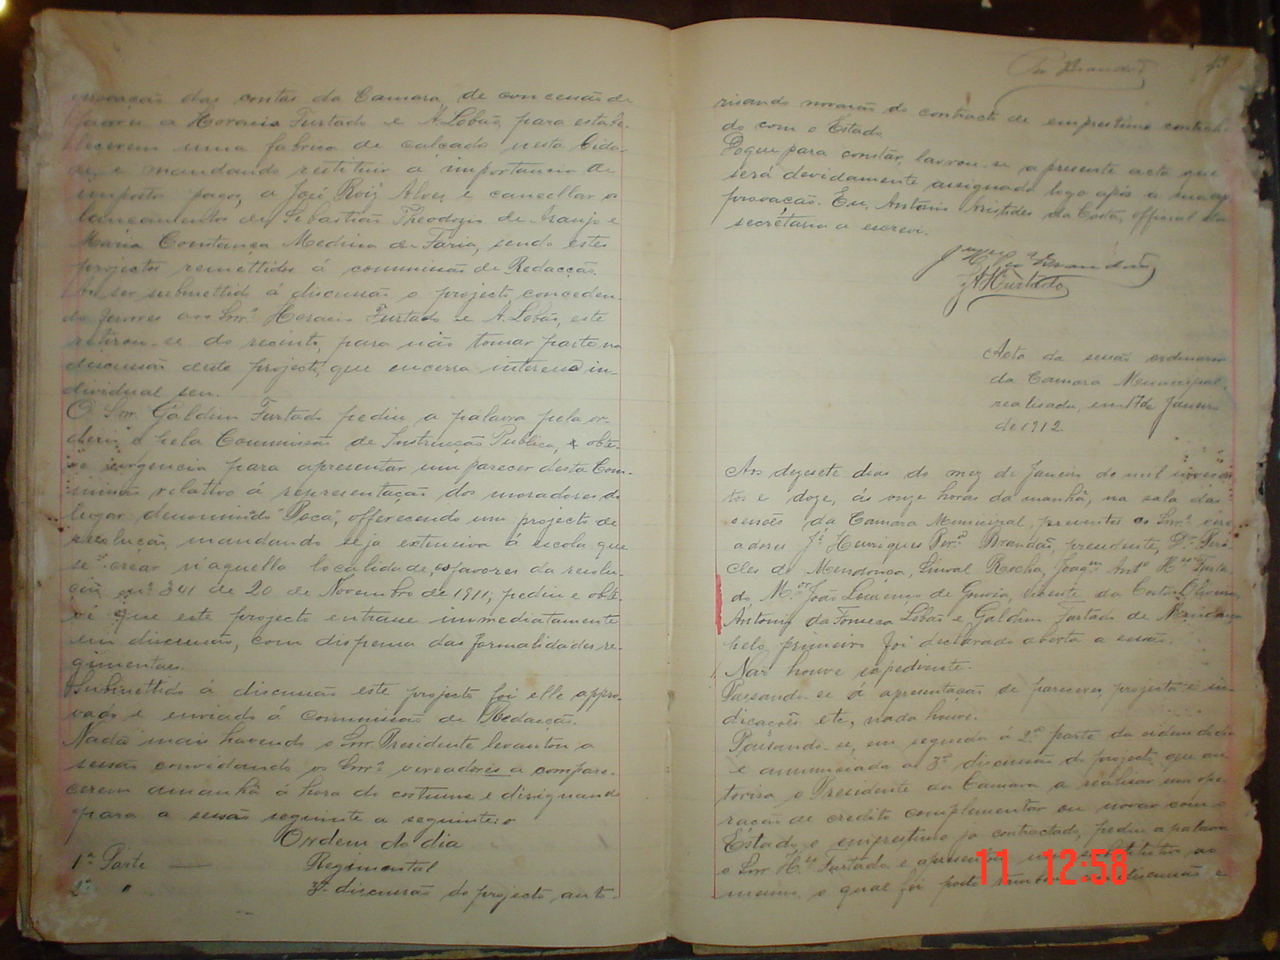 provação das contas da Camara, de concessão de
favores a Horacio Furtado e A. Lobão, para estabe-
lecerem uma fabrica de calçado nesta Cida-
de, e mandando restituir a importancia de
imposto pago, a José Roiz Alves e cancellar o
lançamento de Sebastião Theodozio de Araujo e
Maria Constança Medina de Faria, sendo estes
projectos remettidos á commissão de Redacção.
Ao ser submettido á discussão o projecto conceden-
do favores aos Snrs. Horacio Furtado e A. Lobão, este
retirou-se do recinto, para não tomar parte na
discussão deste projecto, que encerra interesse in-
dividual seu.
O Snr. Galdim Furtado pediu a palavra pela or-
dem e pela Commissão de Instrucção Publica, e obte-
ve urgencia para apresentar um parecer desta Com-
missão relativo á representação dos moradores do
lugar denominado "Toca", offerecendo um projecto de
resolução, mandando seja extensiva á escola que
se crear n'aquella localidade, os favores da resolu-
ção nº 341 de 20 de Novembro de 1911; pediu e obte-
ve que este projecto entrasse immediatamente
em discussão, com dispensa das formalidades re-
gimentaes.
Submettido á discussão este projecto foi elle appro-
vado e enviado á Commissão de Redacção.
Nada mais havendo o Snr. Presidente levantou a
sessão convidando os Snrs. vereadores a compare-
cerem amanhã á hora do costume e designando
para a sessão seguinte a seguinte:
Ordem do dia
1ª Parte — Regimental
2ª " 3ª discussão do projecto auto-
Brandão
risando novação do contracto de emprestimo contrahi-
do com o Estado
Do que para constar, lavrou-se a presente acta que
será devidamente assignada logo após a sua ap-
provação. Eu, Antonio Aristides da Costa, official da
secretaria a escrevi.
Brandão
Furtado
Acta da sessão ordinaria
da Camara Municipal,
realisada em 17 de Janeiro
de 1912.
Aos dezesete dias do mez de Janeiro de mil novecen-
tos e doze, ás onze horas da manhã, na sala das
sessões da Camara Municipal, presentes os Snrs. vere-
adores Jé Henriques Perª Brandão, presidente, Dr. Peri-
cles de Mendonça, Rocha, Joaqm Antº Hes Furta-
do, João Lourenço de Gouvia, Vicente da Costa Oliveira,
Antonio da Fonseca Lobão e Galdim Furtado de Mendonça
pelo primeiro foi declarado aberta a sessão.
Não houve expediente.
Passando-se á apresentação de pareceres, projectos e in-
dicações etc, nada houve.
Passando-se, em seguida á 2ª parte da ordem do dia
e annunciada a 3ª discussão do projecto que au-
torisa o Presidente da Camara a realisar um ope-
ração de credito complementar ou novar com o
Estado o emprestimo já contractado, pediu a palavra
o Snr. Hes Furtado e apresentou um substitutivo ao
mesmo, o qual foi posto tambem em discussão e
11 12:58